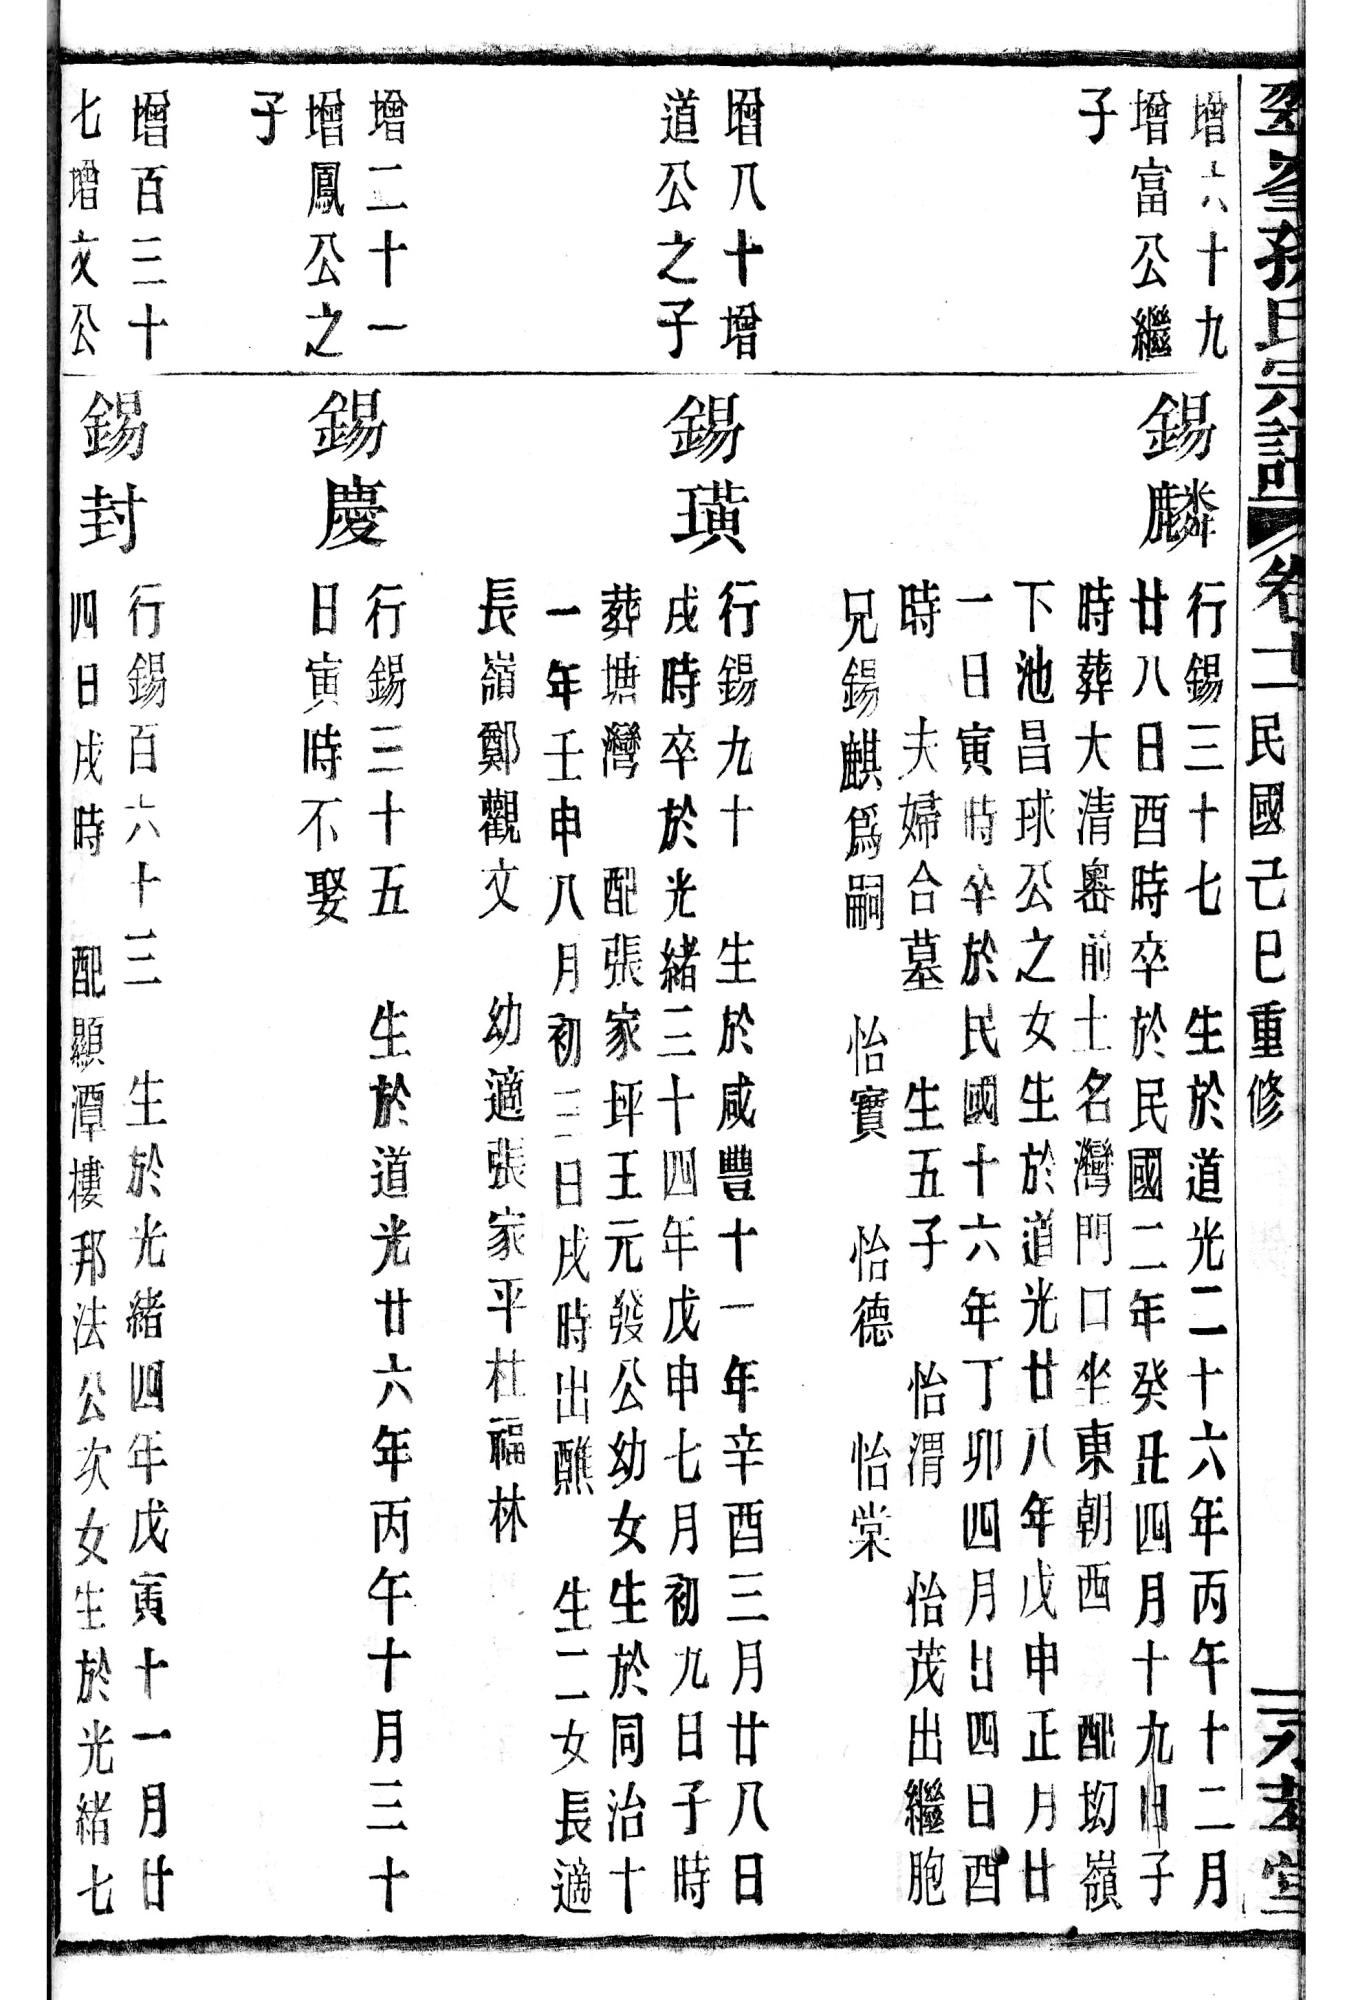 氏宗譜 卷十二 民國己巳重修
增六十九
增富公繼
子
錫麟
行錫三十七 生於道光二十六年丙午十二月
廿八日酉時卒於民國二年癸丑四月十九日子
時葬大清畧前土名灣門口坐東朝西 配坳嶺
下池昌球公之女生於道光廿八年戊申正月廿
一日寅時卒於民國十六年丁卯四月廿四日酉
時 夫婦合墓 生五子 怡渭 怡茂出繼胞
兄錫麒為嗣 怡寶 怡德 怡棠
增八十增
道公之子
錫璜
行錫九十 生於咸豐十一年辛酉三月廿八日
戌時卒於光緒三十四年戊申七月初九日子時
葬塘灣 配張家坪王元發公幼女生於同治十
一年壬申八月初三日戌時出醮 生二女長適
長嶺鄭觀文 幼適張家平杜福林
增二十一
增鳳公之
子
錫慶
行錫三十五 生於道光廿六年丙午十月三十
日寅時不娶
增百三十
七增文公
錫封
行錫百六十三 生於光緒四年戊寅十一月廿
四日戌時 配顯潭樓邦法公次女生於光緒七